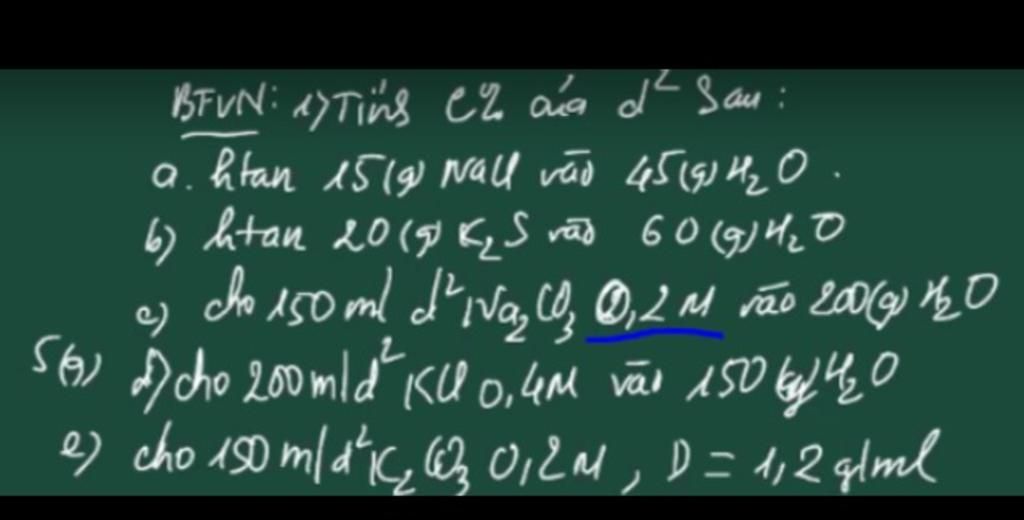 BTVN: 1) Tính C% của d² sau:
a. htan 15(g) NaCl vào 45(g) H₂O.
b) htan 20(g) K₂S vào 60(g) H₂O
c) cho 150ml d² Na₂CO₃ 0,2M vào 200(g) H₂O
5(g) d) cho 200ml d² KCl 0,4M vào 150 H₂O
e) cho 150ml d² K₂CO₃ 0,2M, D = 1,2 g/ml